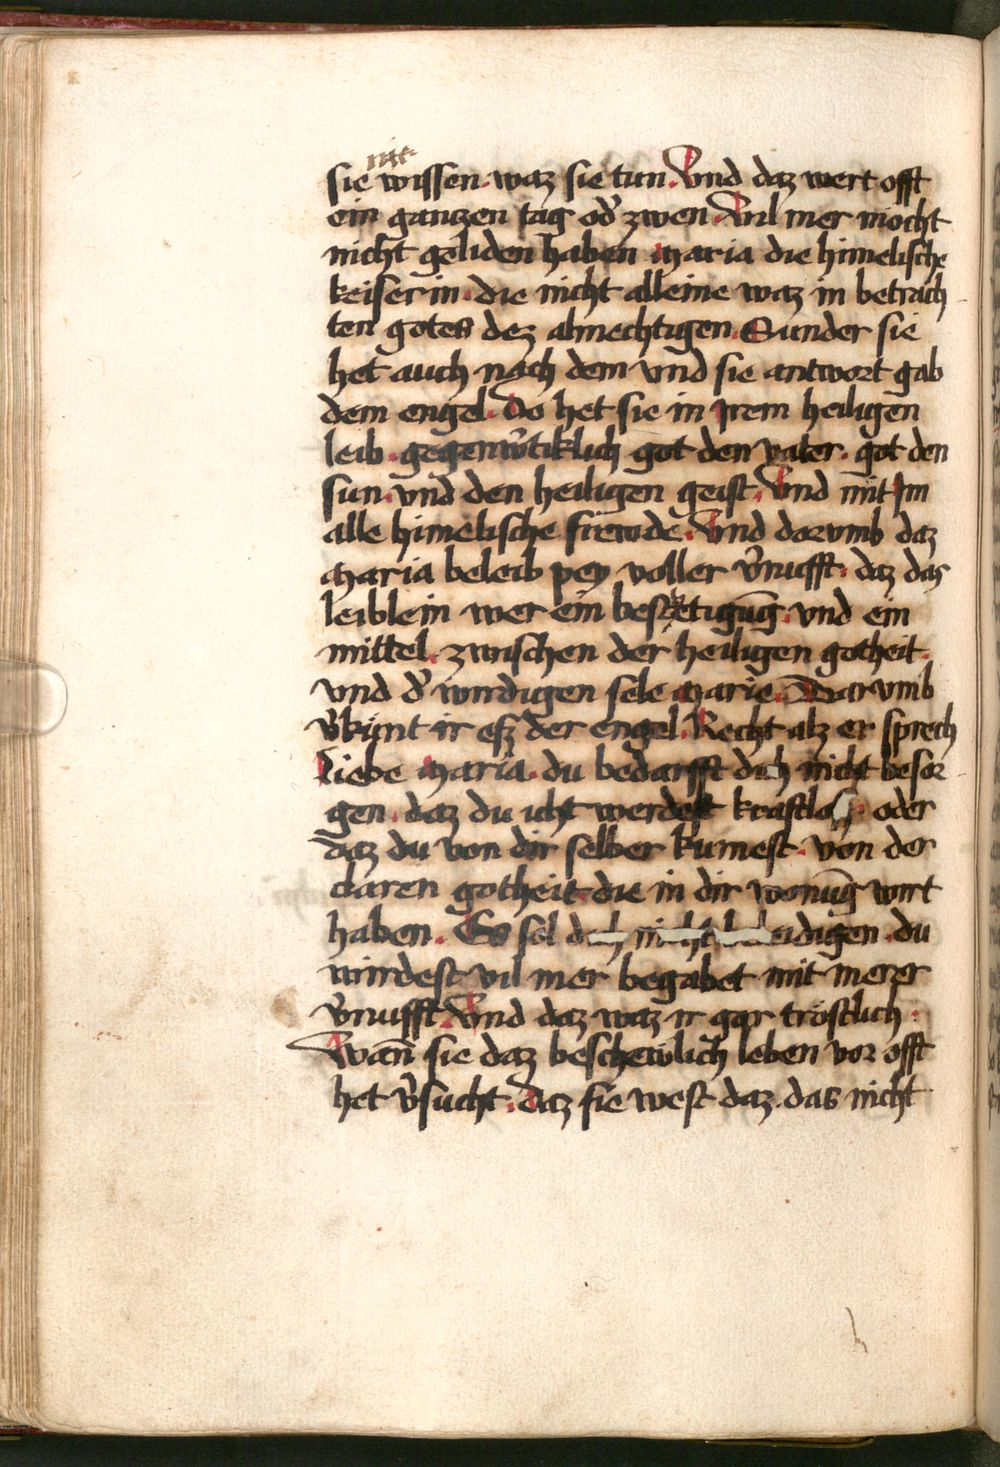 nit
sie wissen. waz sie tun. Vnd daz wert offt
ein ganczen tag od̕ zwen. Vil mer mocht
nicht geliden haben maria die himelische
keiserin. die nicht alleine waz in betrach
ten gotes dez almechtigen. Sunder sie
het auch nach dem vnd sie antwort gab
dem engel. Do het sie in jrem heiligen
leib. gegenw̕tiklich got den vater. got den
sun. vnd den heiligen geist. Vnd mit Jm
alle himelische frewde. Vnd dorvmb daz
maria beleib pey voller v̕nufft. daz das
leiblein wer ein bestetigūg. vnd ein
mittel. zwischen der heiligen gotheit.
vnd d̕ wirdigen sele marie. Darvmb
v̕künt ir esz der engel. Recht alz er sprech
Liebe maria. du bedarfft dich nicht besor
gen. daz du icht werdest kraftlos. oder
daz du von dir selber kumest. von der
claren gotheit die in dir wonūg wirt
haben. Es sol dich nicht beleidigen. du
wirdest vil mer begabet mit merer
v̕nufft. Vnd daz waz ir gar tröstlich.
Wan̄ sie daz beschewlich leben vor offt
het v̕sucht. daz sie west daz. das nicht